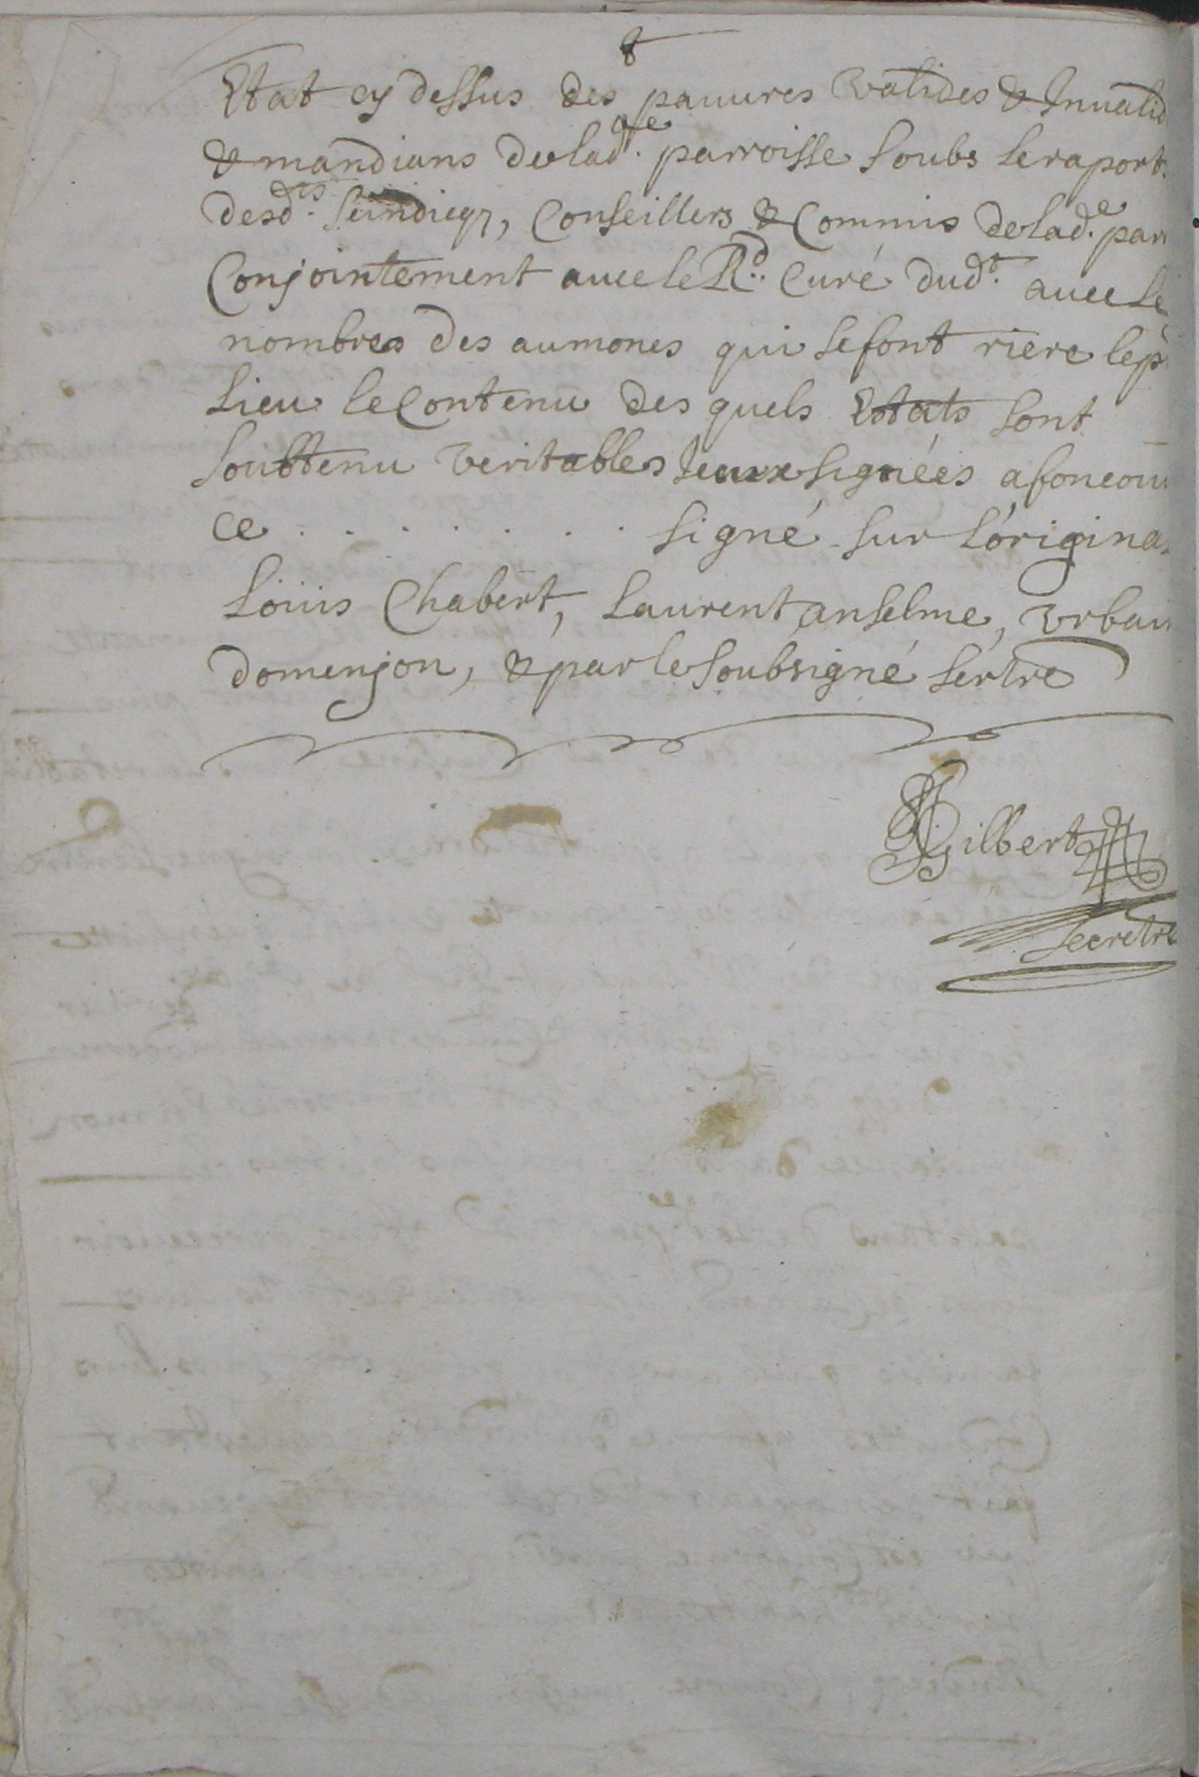 Etat cy dessus des pauures valides & Inualid
& mandians delad.te parroisse soubs le raport
desd.ts scindicqz, Conseillers & Commis delad.e parr
Conjointement auec le R.d Curé dud.t auec le
nombres des aumones qui se font riere le p
Lieu le Contenu des quels Etats sont
soubtenu veritables
signées
ce . . . . . . . signé sur L'origina
Loüis Chabert, Laurent anselme, vrbain
domenjon, & par le soubsigné sertre
Gilbert
secretre